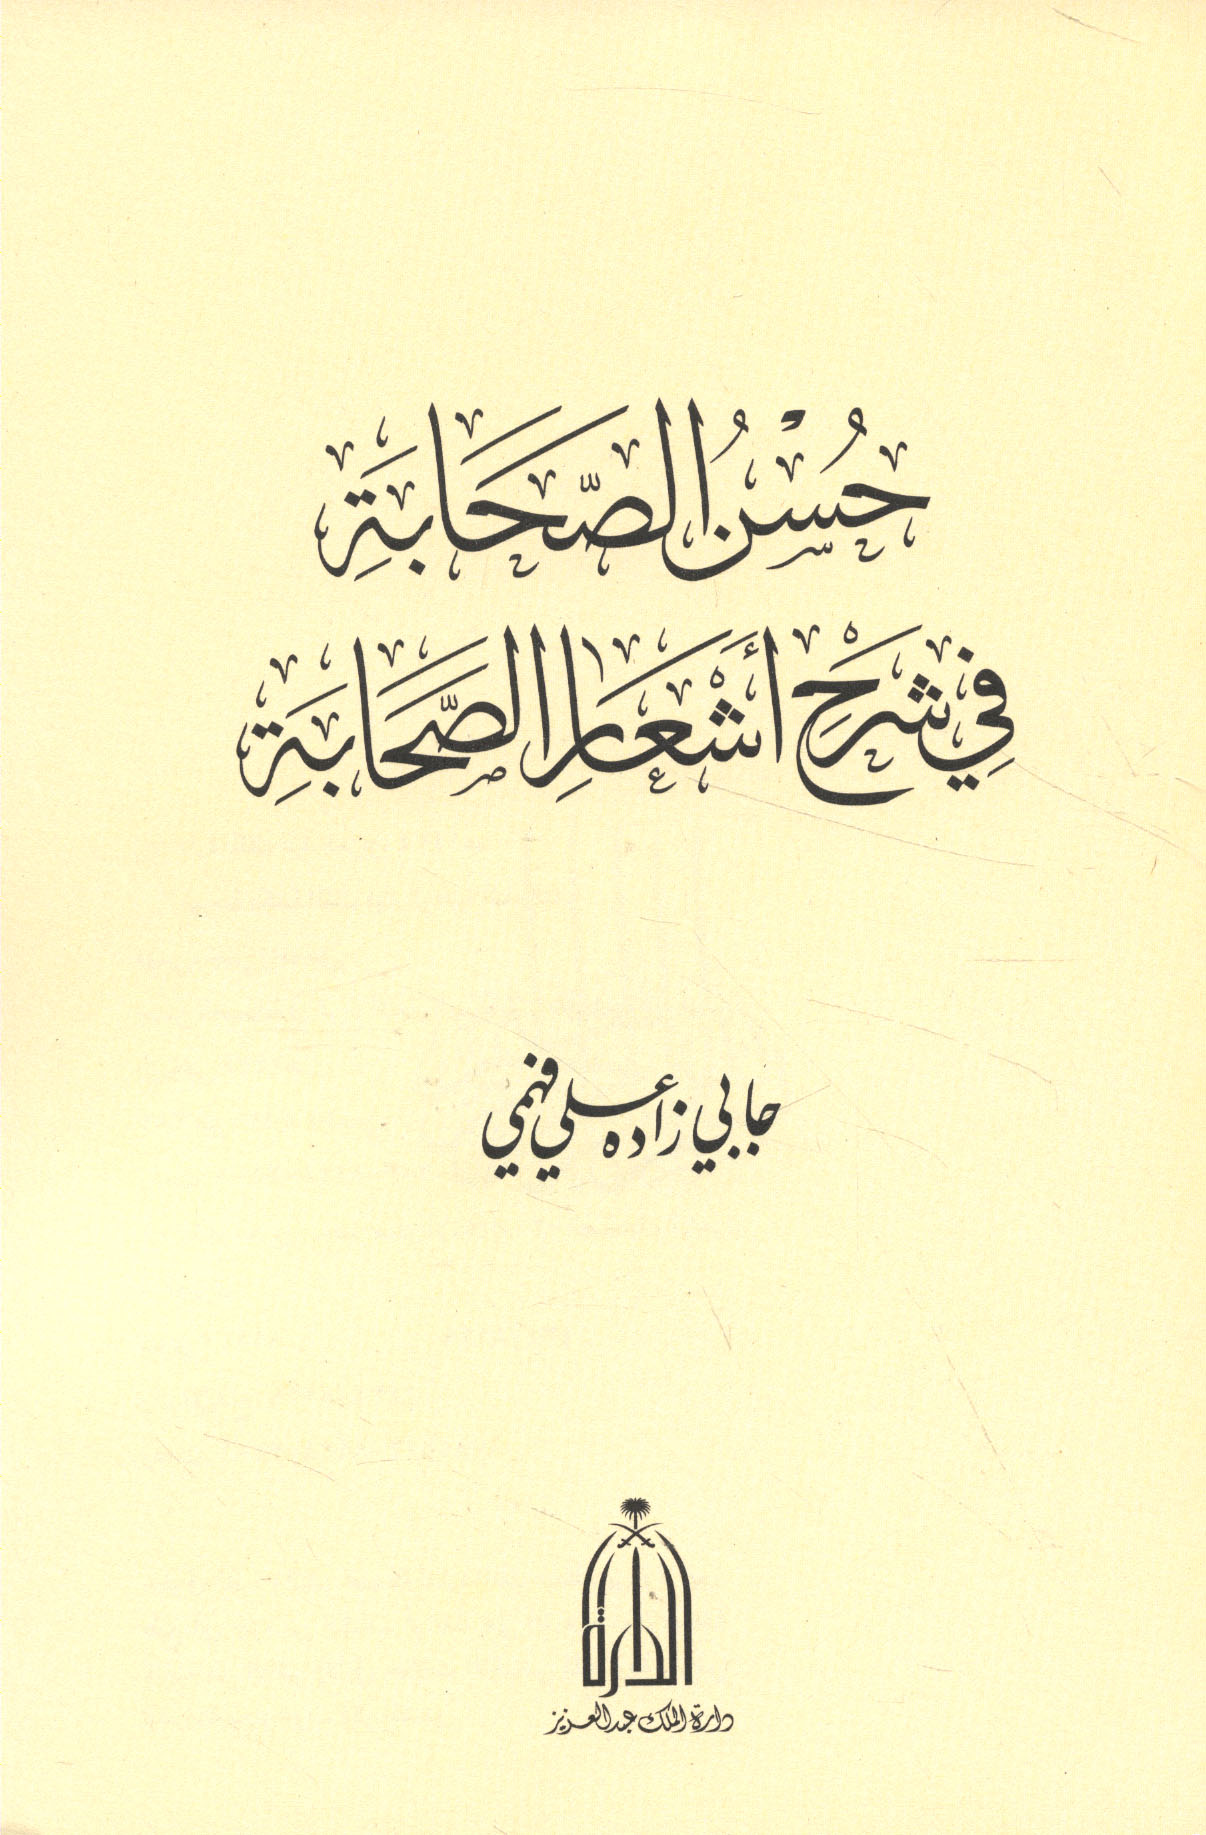 حُسْنُ الصَّحَابَةِ
فِي شَرْحِ أَشْعَارِ الصَّحَابَةِ
جابي زاده علي فهمي
الدارة
دارة الملك عبدالعزيز